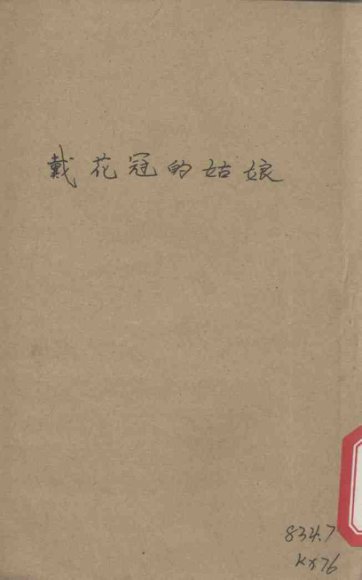 戴花冠的姑娘
834.7
kx76